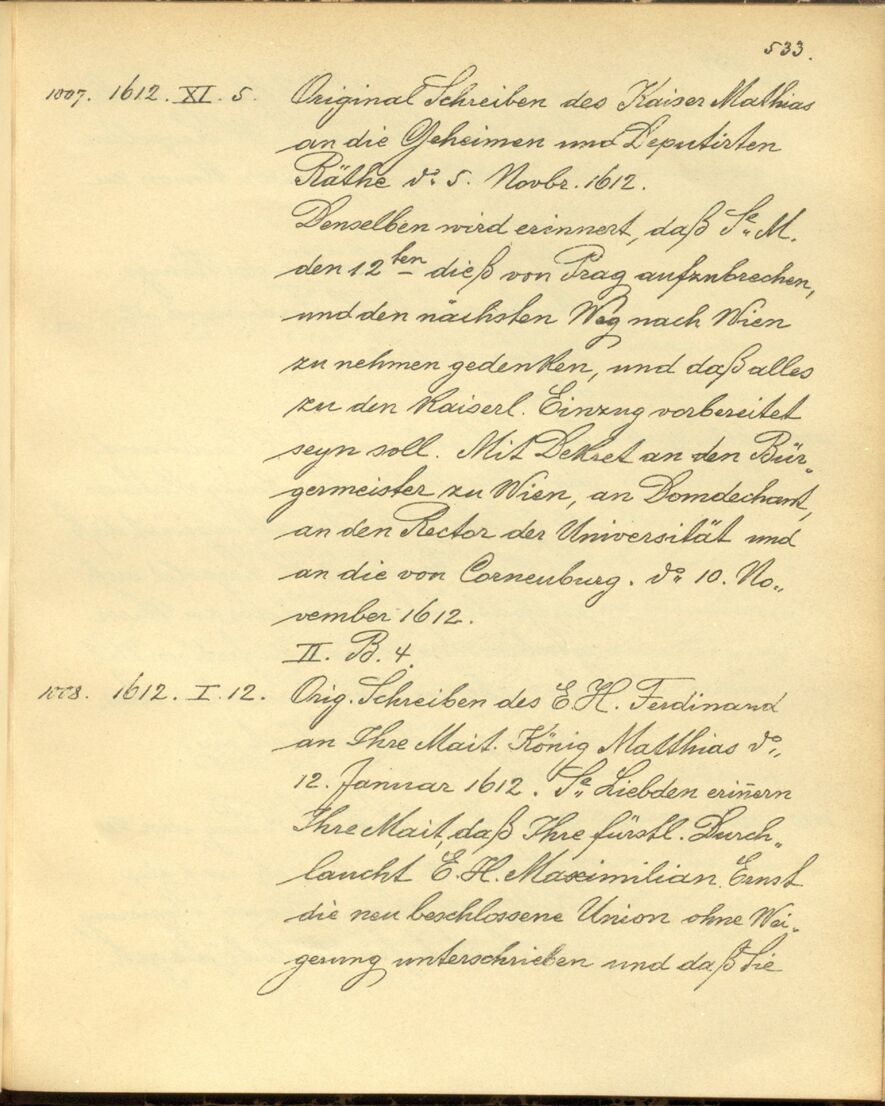 533.
1007. 1612. XI. 5. Original Schreiben des Kaiser Mathias
an die Geheimen und Deputirten
Räthe do. 5. Novbr. 1612.
Denselben wird erinnert, daß Se. M.
den 12ten dieß von Prag aufzubrechen,
und den nächsten Weg nach Wien
zu nehmen gedenken, und daß alles
zu den Kaiserl. Einzug vorbereitet
seyn soll. Mit Dekret an den Bür-
germeister zu Wien, an Domdechant,
an den Rector der Universität und
an die von Corneuburg. do. 10. No-
vember 1612.
II. B. 4.
1008. 1612. I. 12. Orig. Schreiben des E. H. Ferdinand
an Ihre Mait. König Matthias do.
12. Januar 1612. Se. Liebden erin̄ern
Ihre Mait, daß Ihre fürstl. Durch-
laucht E. H. Maximilian Ernst
die neu beschlossene Union ohne Wei-
gerung unterschrieben und daß Sie